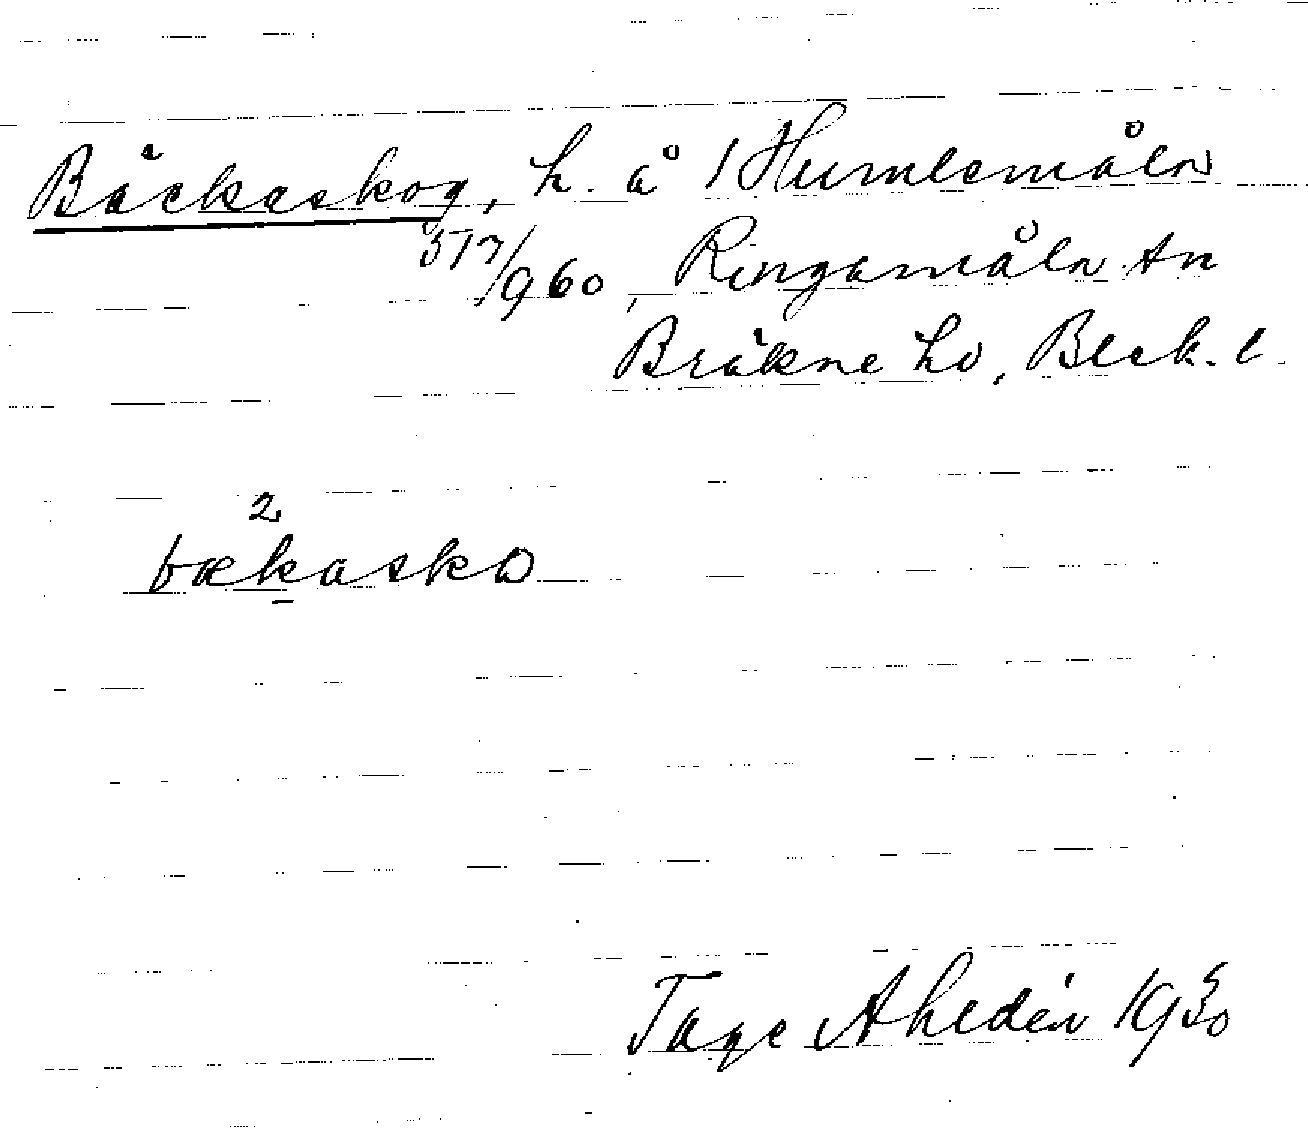 Bäckaskog, h. å 1 Humlemåla
517/960, Ringamåla sn
Bräkne hd, Blek. l.
2
bækasko
Tage Ahldén 1930